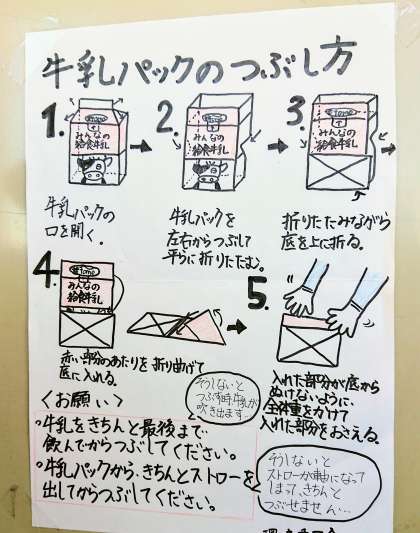 牛乳パックのつぶし方
1.
みんなの
給食牛乳
牛乳パックの
口を開く。
2.
みんなの
給食牛乳
牛乳パックを
左右からつぶして
平らに折りたたむ。
3.
みんなの
給食牛乳
折りたたみながら
底を上に折る。
4.
みんなの
給食牛乳
赤い部分のあたりを折り曲げて
底に入れる。
5.
入れた部分が底から
ぬけないように、
全体重をかけて
入れた部分をおさえる。
〈お願い〉
•牛乳をきちんと最後まで
飲んでからつぶしてください。
そうしないと
つぶす時、牛乳が
吹き出ます
•牛乳パックから、きちんとストローを
出してからつぶしてください。
そうしないと
ストローが軸になって
しまって、きちんと
つぶせません…